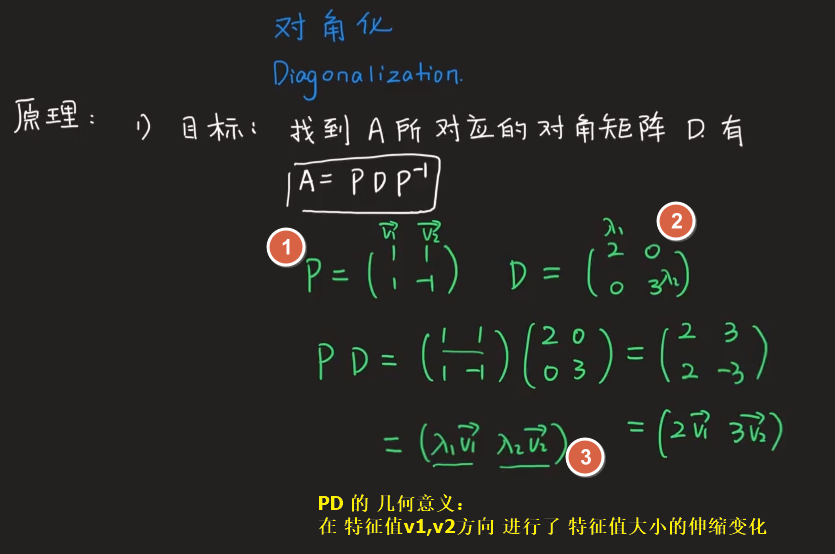 对角化
Diagonalization.
原理: 1) 目标: 找到 A 所对应的对角矩阵 D. 有
A = P D P⁻¹
① P = ( v₁→ v₂→ ; 1 1 ; 1 -1 ) D = ( λ₁ ; 2 0 ; 0 3 λ₂ ) ②
P D = ( 1 1 ; 1 -1 ) ( 2 0 ; 0 3 ) = ( 2 3 ; 2 -3 )
= ( λ₁v₁→ λ₂v₂→ ) ③ = ( 2v₁→ 3v₂→ )
PD 的 几何意义:
在 特征值v1,v2方向 进行了 特征值大小的伸缩变化